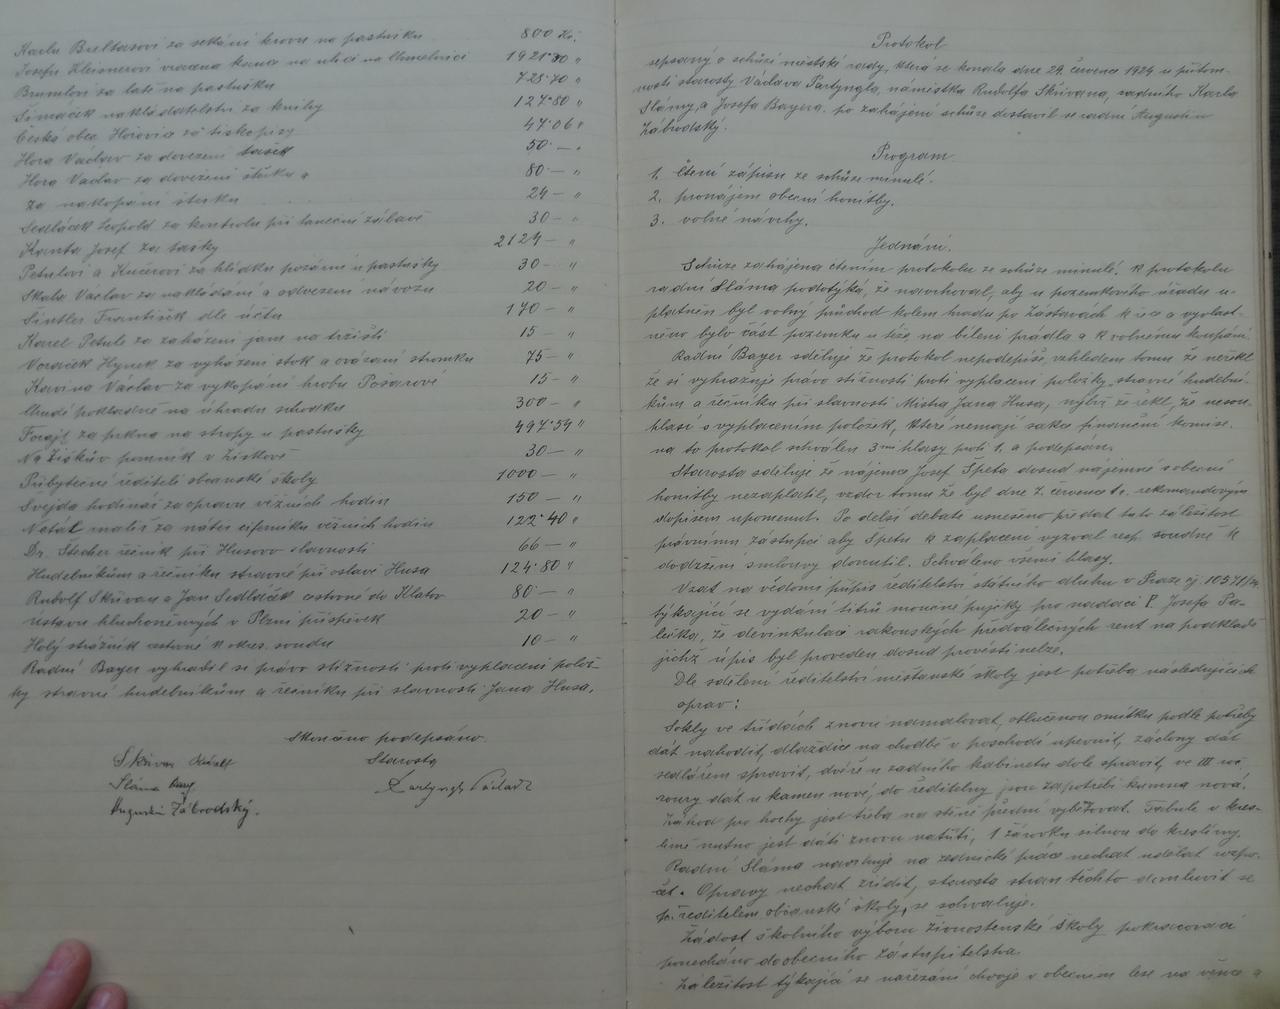 Karlu Bultasovi za sekání krovu na pastvišku 800 Kč.
Josefu Kleisnerovi vrácena kauce na ulici na Chmelnici 1921·20 "
Brumlovi za latě na pastušku 728·70 "
Šimáček nakladatelství za knihy 127·80 "
Česká obec Hořovice za tiskopisy 47·06 "
Hora Václav za dovezení tašek 50·— "
Hora Václav za dovežení štěrku a 80·— "
za nakopání štěrku 24— "
Sedláček Leopold za kontrolu při taneční zábavě 30— "
Kanta Josef za tašky 2124— "
Petulovi a Kučerovi za hlídku požární u pastušky 30— "
Skala Václav za nakládání a odvezení návozu 20— "
Šintler František dle účtu 170— "
Karel Petule za zaházení jam na tržišti 15— "
Voráček Hynek za vyházení stok a ovázání stromku 75— "
Kavina Václav za vykopání hrobu Pošarové 15— "
Chudé pokladně na úhradu schodku 300— "
Forajt za prkna na stropy u pastušky 497·54 "
Na Žižkův pomník v Žižkově 30— "
Příbytečné řediteli obecné školy 1000— "
Švejda hodinář za opravu věžních hodin 150— "
Natál malíř za nátěr ciferníku věžních hodin 122·40 "
Dr. Štecher řečník při Husovo slavnosti 66— "
Hudebníkům a řečníku stravné při oslavě Husa 124·80 "
Rudolf Skřivan a Jan Sedláček cestovné do Klatov 80·— "
ústavu hluchoněmých v Plzni příspěvek 20— "
Holý strážník cestovné k okres. soudu 10— "
Radní Bayer vyhradil si právo stížnosti proti vyplacení polož-
ky stravné hudebníkům a řečníku při slavnosti Jana Husa.
Skončeno podepsáno.
Skřivan Rudolf Starosta
Sláma Karel Partyngl Václav
Augustin Zábrodský.
Protokol
sepsaný o schůzi městské rady, která se konala dne 29. července 1924 u přítom-
nosti starosty Václava Partyngla, náměstka Rudolfa Skřivana, radního Karla
Slámy a Josefa Bayera. po zahájení schůze dostavil se radní Augustin
Zábrodský.
Program
1. čtení zápisu ze schůze minulé.
2. pronájem obecní honitby.
3. volné návrhy.
Jednání.
Schůze zahájena čtením protokolu ze schůze minulé. K protokolu
radní Sláma podotýká, že navrhoval, aby u pozemkového úřadu u-
platněn byl volný průchod kolem hradu po zástavách k řece a vyvlast-
něno bylo část pozemku u téže, na bílení prádla a k volnému koupání.
Radní Bayer sděluje že protokol nepodepíše, vzhledem tomu že neřekl
že si vyhražuje právo stížnosti proti vyplacení položky „stravné hudební-
kům a řečníku při slavnosti Mistra Jana Husa, nýbrž že řekl, že nesou-
hlasí s vyplacením položek, které nemají sakce finanční komise.
na to protokol schválen 3mi hlasy proti 1, a podepsán.
Starosta sděluje že nájemce Josef Špeta dosud nájemné z obecní
honitby nezaplatil, vzdor tomu že byl dne 7. července t.r. rekomandovým
dopisem upomenut. Po delší debatě usneseno předat tuto záležitost
právnímu zástupci aby Špetu k zaplacení vyzval resp. soudně k
dodržení smlouvy donutil. Schváleno všemi hlasy.
Vzat na vědomí přípis ředitelství státního dluhu v Praze čj. 10571/
týkající se vydání titrů moučné půjčky pro nadaci P. Josefa Pa-
lečka, že devinkulaci rakouských předválečných rent na podkladě
jichž úpis byl proveden dosud provésti nelze.
Dle sdělení ředitelství měšťanské školy jest potřeba následujících
oprav:
Sokly ve třídách znovu namalovat, otlučenou omítku podle potřeby
dát nahodit, dlaždice na chodbě v poschodí upevnit, záclony dát
sedlářem spravit, dvéře u zadního kabinetu dole spravit, ve III.
roury dát u kamen nové, do ředitelny jsou zapotřebí kamna nová.
Záchod pro hochy jest třeba na stěně přední vybéžovat. Tabule v kres-
lírně nutno jest dáti znovu natříti, 1 žárovku silnou do kreslírny.
Radní Sláma navrhuje na zednické práce nechat udělat rozpo-
čet. Opravy nechat zřídit, starosta stran těchto domluvit se
s p. ředitelem občanské školy, se schvaluje.
Žádost školního výboru živnostenské školy pokračovací
ponecháno do obecního zástupitelstva.
Záležitost týkající se nařezání chvoje v obecním lese na věnce a